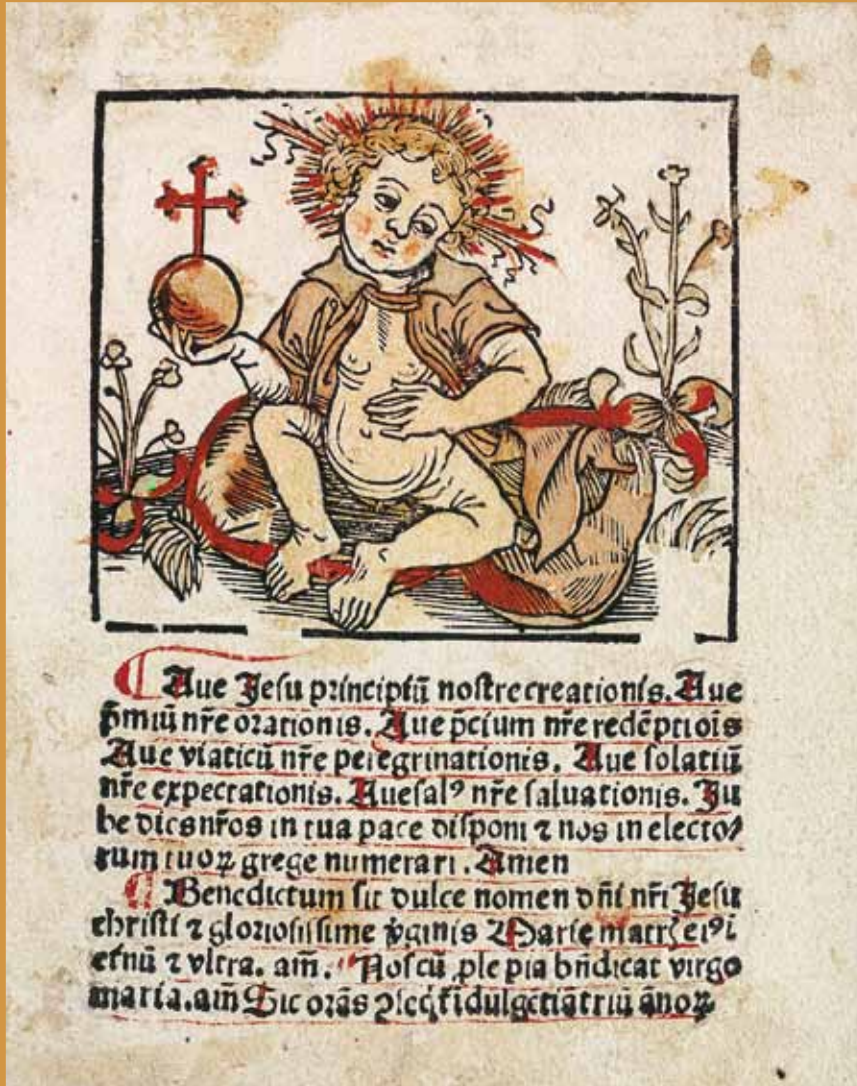 Aue Jesu principiū nostre creationis. Aue
p̄miū nr̄e orationis. Aue p̄cium nr̄e redēptiōis
Aue viaticū nr̄e peregrinationis. Aue solatiū
nr̄e expectationis. Aue salꝰ nr̄e saluationis. Ju
be dies nr̄os in tua pace disponi ⁊ nos in electo⸗
rum tuoꝝ grege numerari. Amen
Benedictum sit dulce nomen dn̄i nr̄i Jesu
christi ⁊ gloriosissime v̄ginis Marie matr̄ eiꝰ i
et̄nū ⁊ vltra. am̄. Nos cū ꝓle pia bn̄dicat virgo
maria. am̄ Sic orās ꝯseq̄t̄ idulgētiā triū ānoꝝ